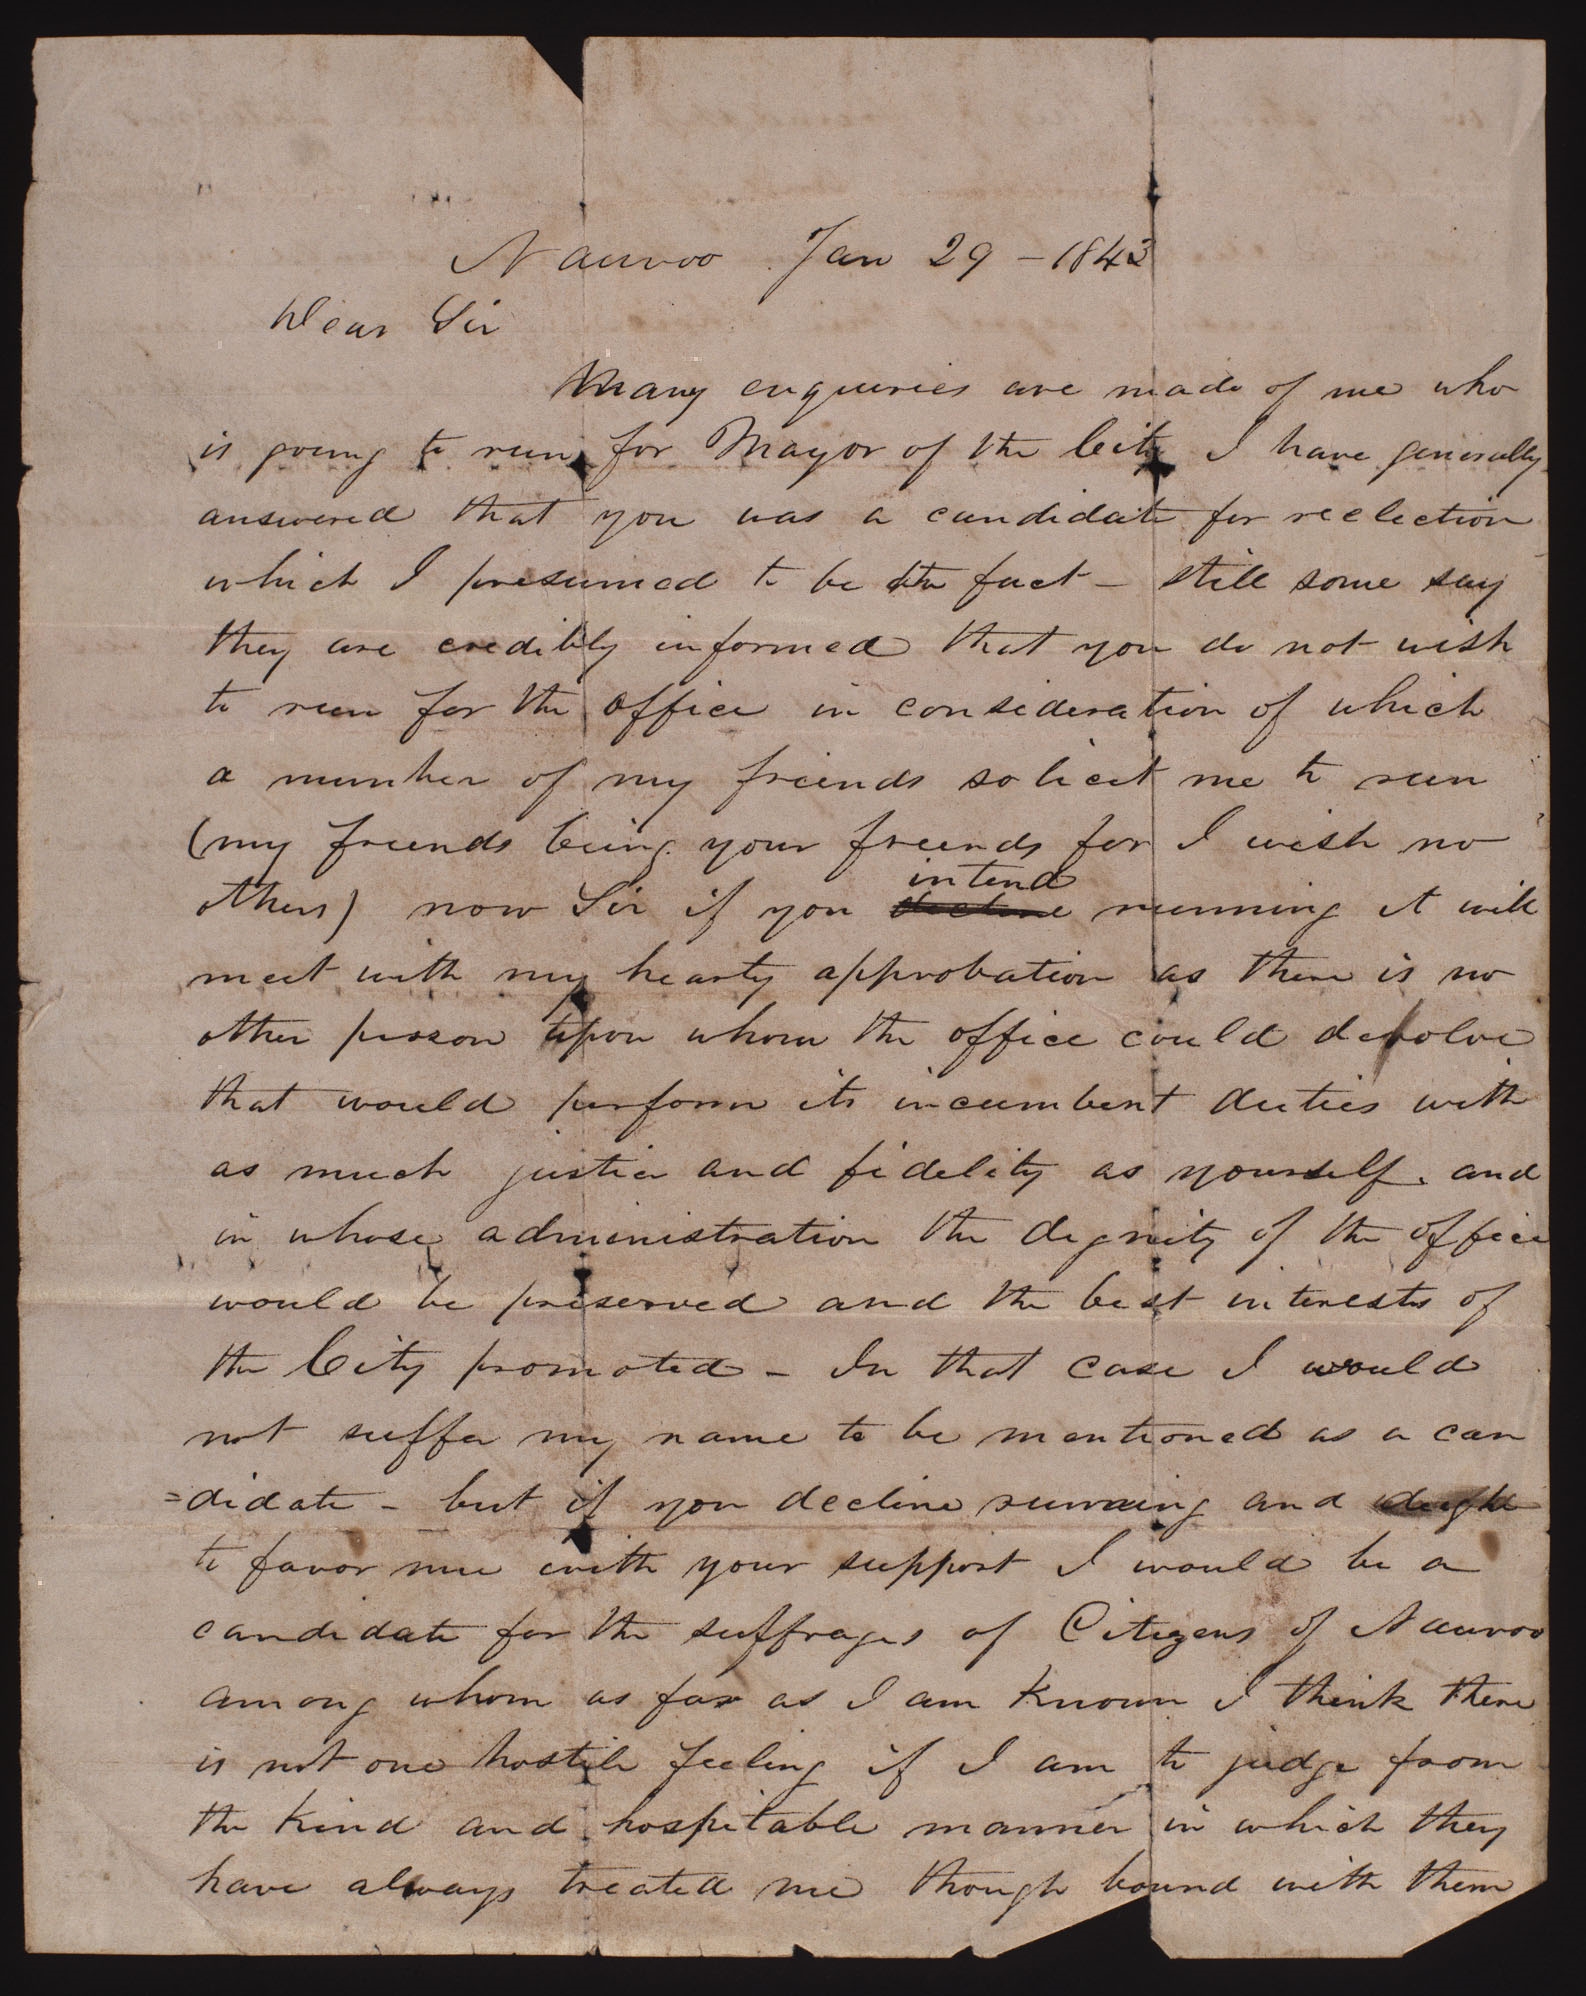 Nauvoo Jan 29 - 1843
Dear Sir
Many enquiries are made of me who
is going to run for Mayor of the City I have generally
answered that you was a candidate for reelection
which I presumed to be the fact - still some say
they are credibly informed that you do not wish
to run for the office in consideration of which
a number of my friends solicit me to run
(my friends being your friends for I wish no
intend
others) now Sir if you decline running it will
meet with my hearty approbation as there is no
other person upon whom the office could devolve
that would perform its incumbent duties with
as much justice and fidelity as yourself. and
in whose administration the dignity of the office
would be preserved and the best interests of
the City promoted - In that case I would
not suffer my name to be mentioned as a can
=didate - but if you decline running and
to favor me with your support I would be a
candidate for the suffrages of Citizens of Nauvoo
among whom as far as I am known I think there
is not one hostile feeling if I am to judge from
the kind and hospitable manner in which they
have always treated me though bound with them